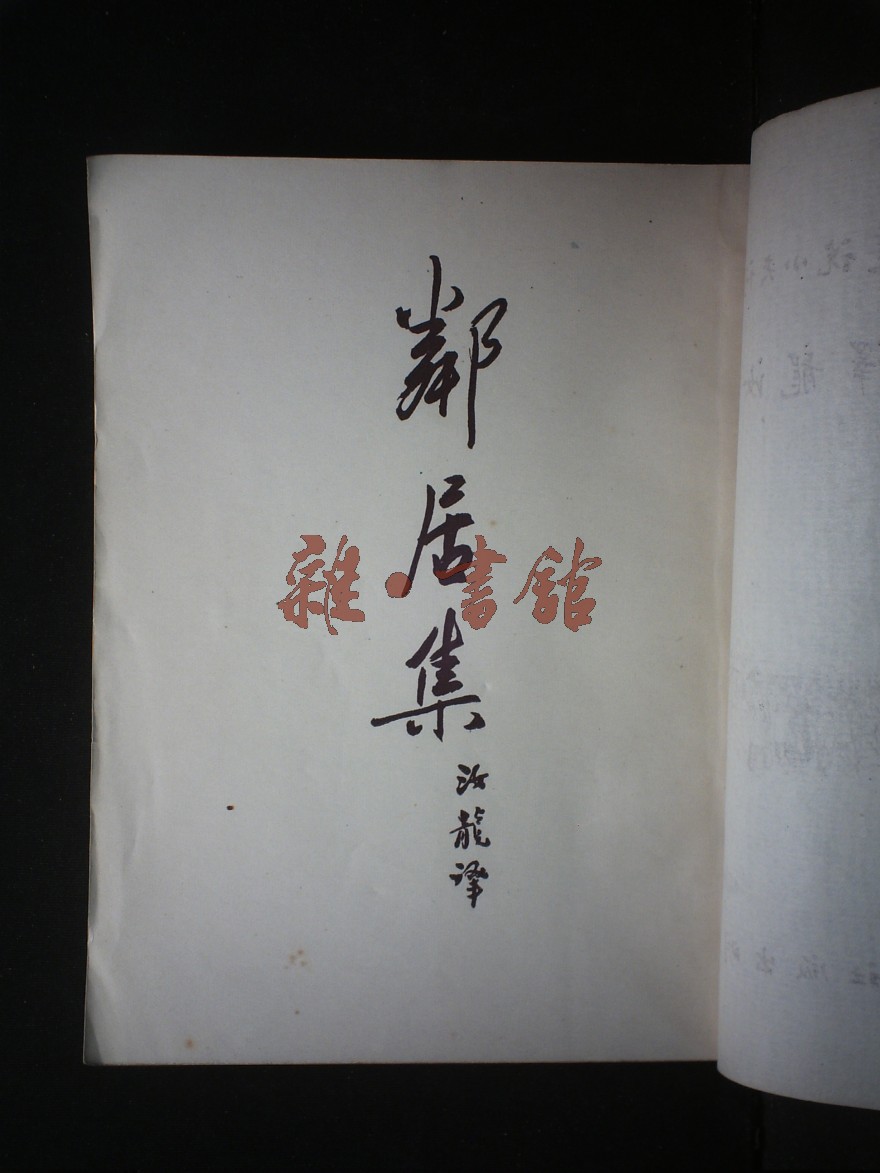 鄰居集
汝龍譯
雜·書館